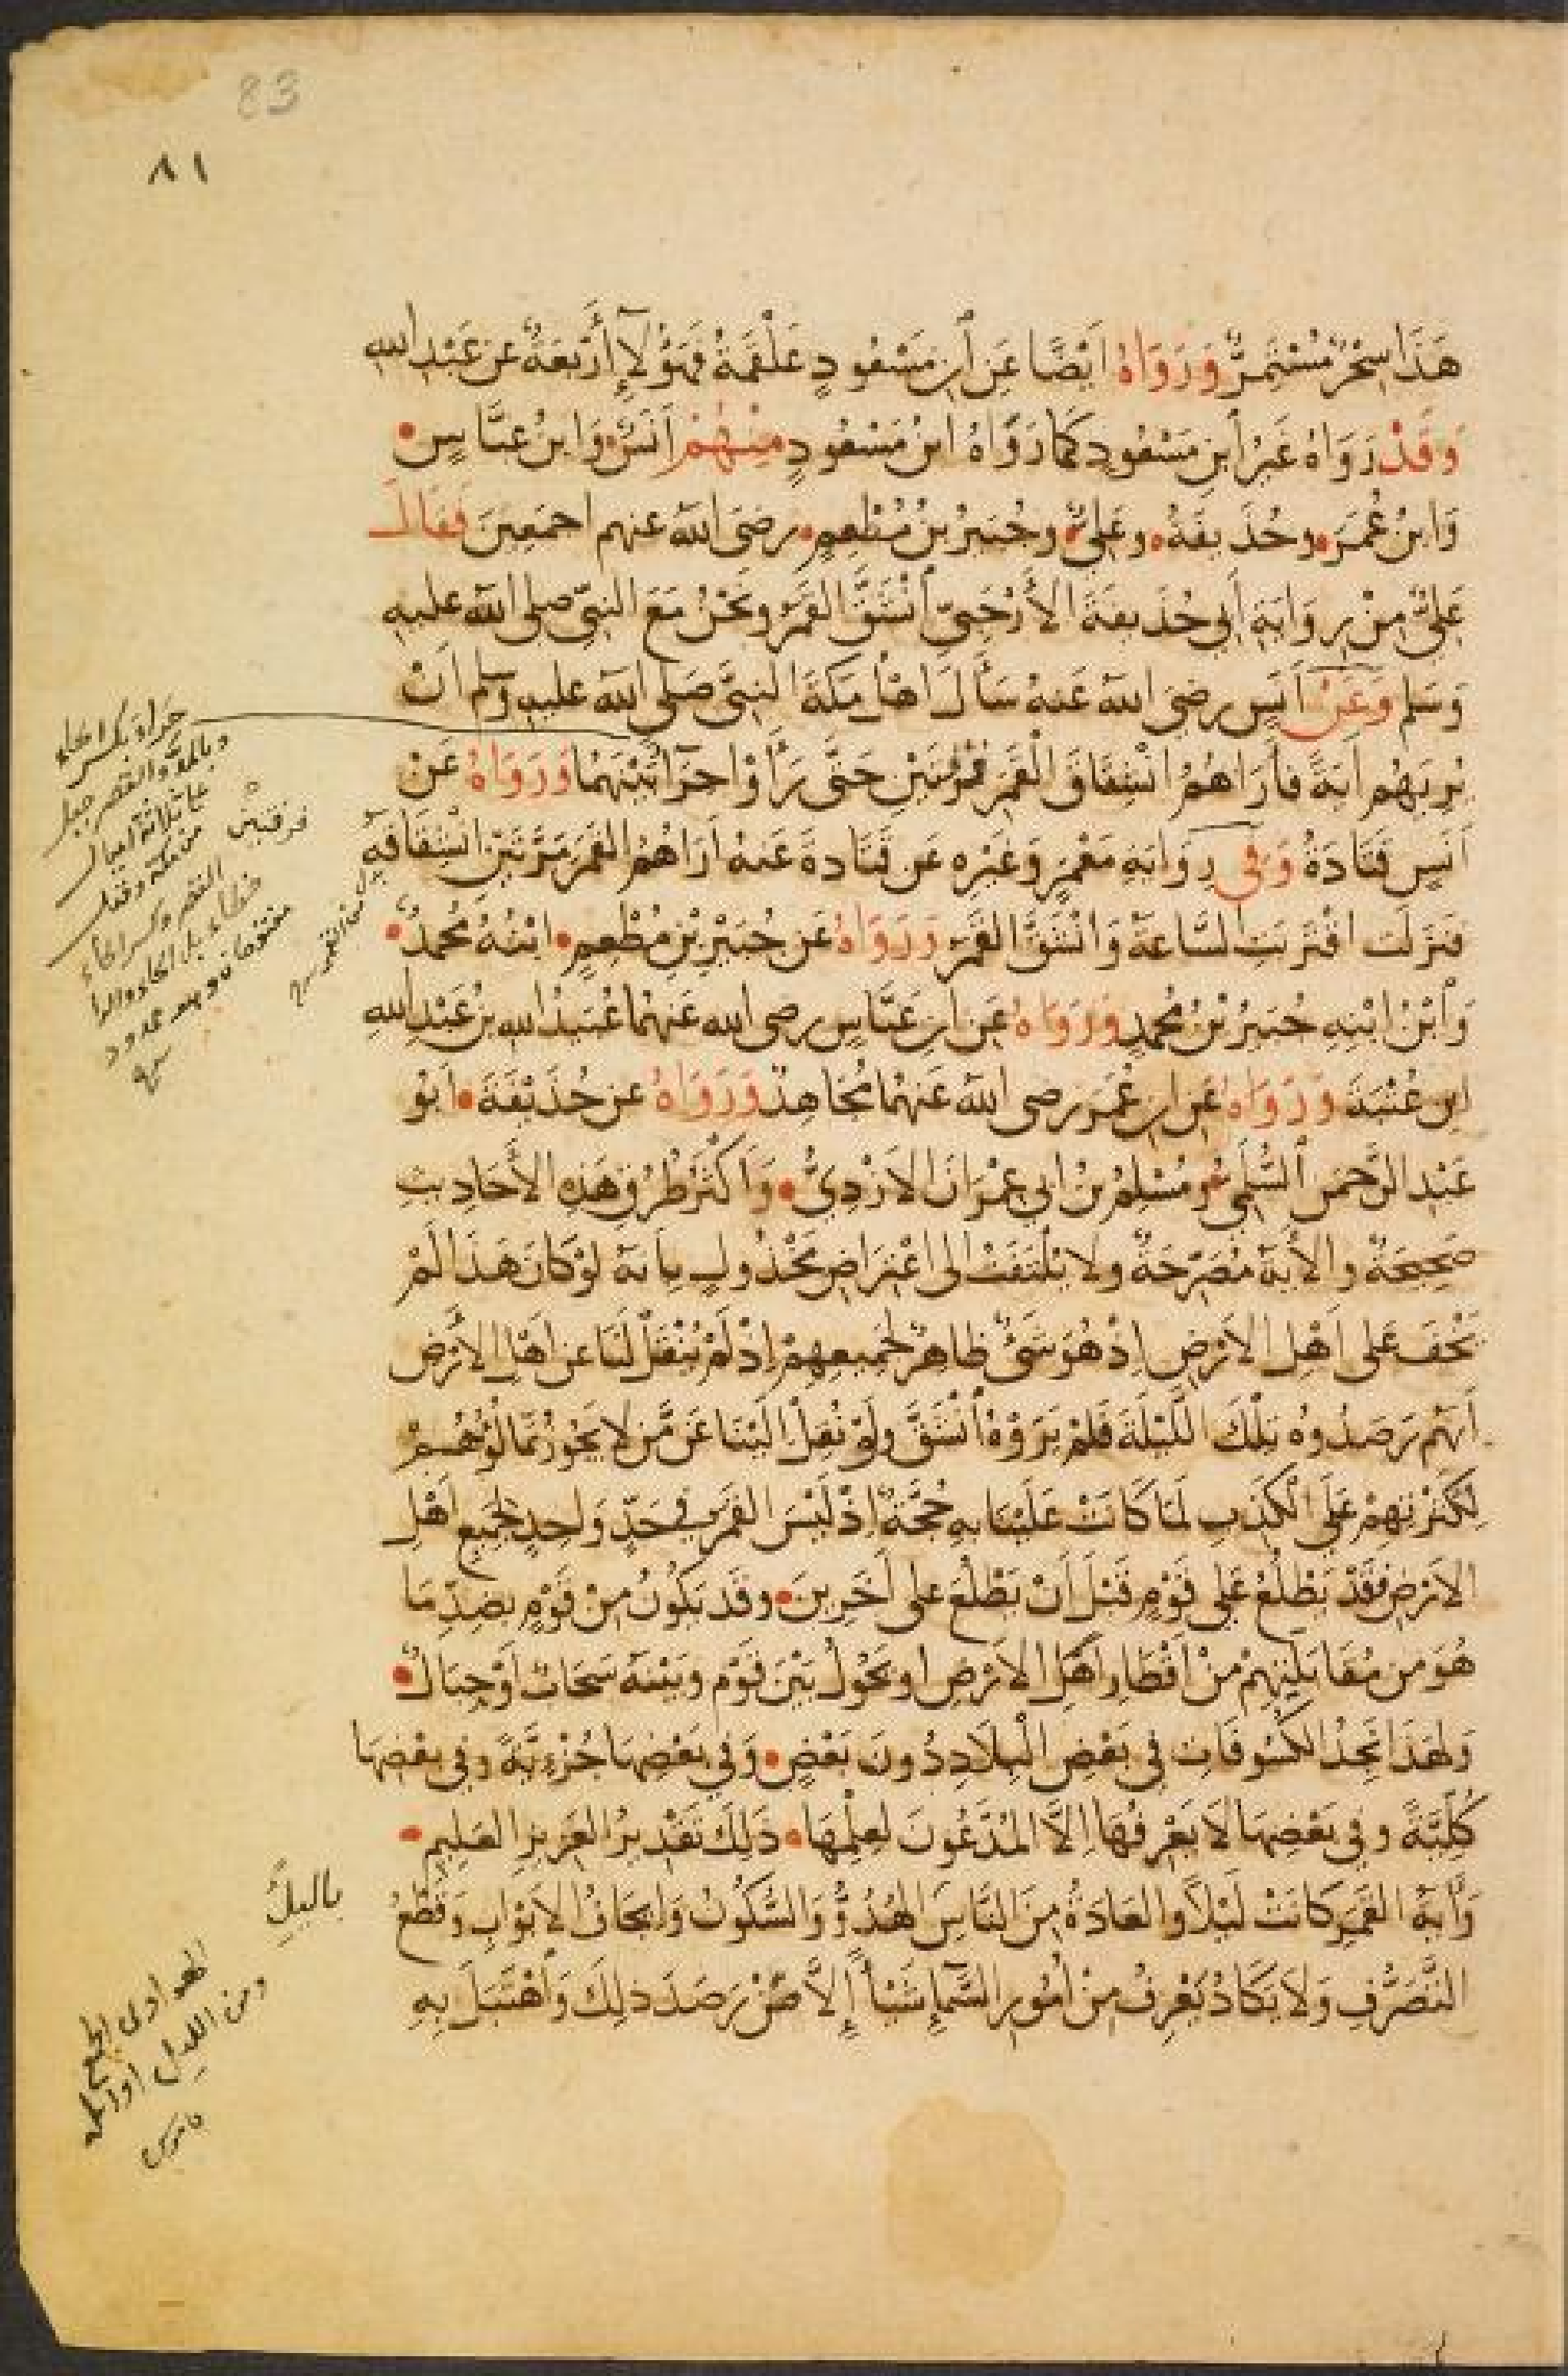 83
٨١
هَذَا سِحْرٌ مُسْتَمِرٌّ وَرَوَاهُ أَيْضًا عَنِ ابْنِ مَسْعُودٍ عَلْقَمَةُ فَهَؤُلَاءِ أَرْبَعَةٌ عَنْ عَبْدِ اللهِ
وَقَدْ رَوَاهُ غَيْرُ ابْنِ مَسْعُودٍ كَمَا رَوَاهُ ابْنُ مَسْعُودٍ مِنْهُمْ أَنَسٌ وَابْنُ عَبَّاسٍ
وَابْنُ عُمَرَ وحُذَيفَةُ وعَلِيٌّ وجُبَيْرُ بْنُ مُطْعِمٍ رضىَ اللهُ عنهم اجمَعِينَ فَقَالَ
عَلِيٌّ مِنْ رِوَايَةِ أَبِي حُذَيفَةَ الأَرْحَبِيِّ انْشَقَّ القَمَرُ ونَحْنُ مَعَ النَّبِيِّ صلى الله عليه
وَسَلم وَعَنْ أَنَسٍ رضىَ اللهُ عَنهُ سَأَلَ اهْلُ مَكَةَ النبِيَّ صَلى الله عليه وسلم انْ
يُرِيَهُم ايَةً فأَرَاهُمُ انْشِقَاقَ الْقَمَرِ فِرْقَتَيْنِ حَتَّى رَأَوْا حِرَآءَ بَيْنَهُمَا وَرَوَاهُ عَنْ
أَنَسٍ قَتَادَةُ وَفِى رِوَايَةِ مَعْمَرٍ وَغَيْرِهِ عَن قَتَادةَ عَنهُ أَرَاهُمُ القَمَرَ مَرَّتَيْنِ انْشِقَاقَهُ
فنَزَلَت اقْتَرَبَتِ السَّاعَةُ وَانْشَقَّ القَمَرُ وَرَوَاهُ عَن جُبَيْرِ بْنِ مُطْعِمٍ ابْنُهُ مُحمدٌ
وَابْنُ ابْنِهِ جُبَيْرُ بْنُ مُحمدٍ وَرَوَاهُ عَنِ ابنِ عَبَّاسٍ رضى الله عَنهُمَا عُبَيْدُ اللهِ بنُ عَبْدِ اللهِ
ابنِ عُتْبَةَ وَرَوَاهُ عَنِ ابنِ عُمَرَ رضى اللهُ عَنهُمَا مُجَاهِدٌ وَرَوَاهُ عن حُذَيْفَةَ ابُو
عَبْدِ الرَّحمَنِ السُّلَمِيُّ ومُسْلِمُ بنُ ابى عِمْرَانَ الازْدِيُّ وَأَكْثَرُ طُرُقِ هَذِهِ الأَحَادِيثِ
صَحِيحَةٌ والأيَةُ مُصَرِّحَةٌ ولا يُلْتَفَتُ الى اعْتِرَاضِ مَخْذُولٍ بِأَنهُ لوْ كانَ هَذَا لَمْ
يَخْفَ عَلى اَهْلِ الارْضِ اِذْ هُوَ شَىْءٌ ظاهِرٌ لجَمِيعِهِمْ إذْ لَمْ يُنْقَلْ لَنَا عن اهْلِ الأرْضِ
أَنهُم رَصَدُوهُ تِلْكَ اللَّيْلَةَ فَلَمْ يَرَوْهُ انْشَقَّ ولَوْ نُقِلَ الَيْنَا عَن مَّن لا يَجُوزُ تَمَالُؤُهُمْ
لِكَثْرَتِهِمْ عَلَى الْكَذِبِ لَمَا كَانَتْ عَلَيْنَا بهِ حُجَّةٌ اِذْ لَيْسَ القَمَرُ فى حَدٍّ وَاحِدٍ لجَمِيعِ أَهْلِ
الارْضِ فقَدْ يَطْلُعُ عَلى قَوْمٍ قَبْلَ أَنْ يَطْلُعَ على أخَرِينَ وقَد يَكُونُ مِنْ قَوْمٍ بضِدِّ مَا
هُوَ من مُقَابِلِيهِمْ مِنْ أَقْطَارِ أَهْلِ الارْضِ او يَحُولُ بَيْنَ قَوْم وبَيْنَهُ سَحَابٌ أَوْ جِبَالٌ
وَلهذَا نَجِدُ الكُسُوفَاتِ فى بَعْضِ الْبِلَادِ دُونَ بَعْضٍ وَفِى بَعْضِهَا جُزْئِيَّةً وفى بعْضِهَا
كُلِّيَّةً وفى بَعْضِهَا لَا يَعْرِفُهَا اِلاَّ المُدَّعُونَ لِعِلْمِهَا ذَلِكَ تَقْدِيرُ العَزِيزِ العَلِيمِ
وَأيَةُ القَمَرِ كَانَتْ لَيْلاً والعَادَةُ مِنَ النَّاسِ الهُدُوُّ وَالسُّكُونُ وَإيجَافُ الابْوَابِ وَقَطْعُ
التَّصَرُّفِ وَلاَ يَكَادُ يَعْرِفُ مِنْ أُمُورِ السَّمَآءِ شَيْأً إِلاَّ مَنْ رَصَدَ ذلِكَ وَاهْتَبَلَ بِهِ
حراء بكسر الحاء
وبالمد والقصر جبل
على ثلاثة اميال
من مكة
فرقتين
بالليل
ومن الليل اوائله